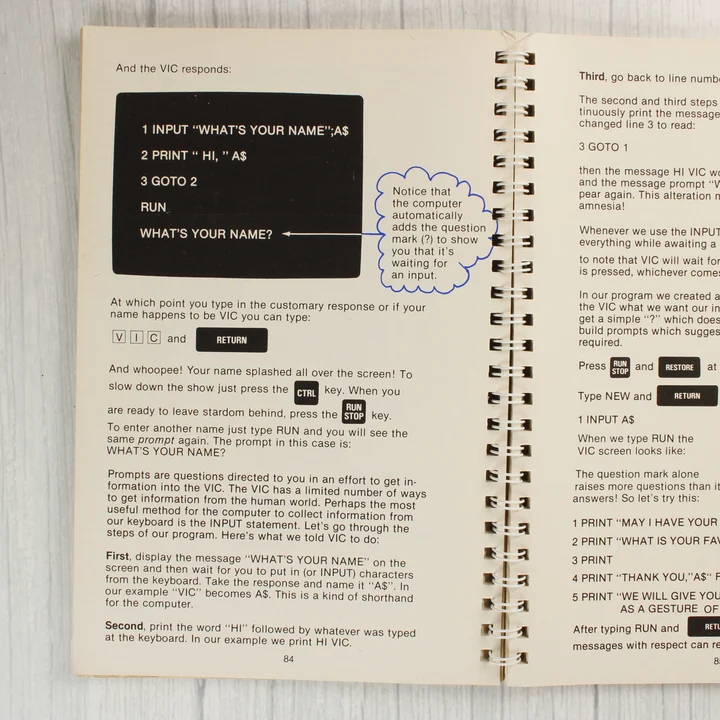 And the VIC responds:
1 INPUT “WHAT'S YOUR NAME”;A$
2 PRINT “ HI, ” A$
3 GOTO 2
RUN
WHAT'S YOUR NAME?
Notice that
the computer
automatically
adds the question
mark (?) to show
you that it's
waiting for
an input.
At which point you type in the customary response or if your
name happens to be VIC you can type:
V I C and RETURN
And whoopee! Your name splashed all over the screen! To
slow down the show just press the CTRL key. When you
are ready to leave stardom behind, press the RUN STOP key.
To enter another name just type RUN and you will see the
same prompt again. The prompt in this case is:
WHAT'S YOUR NAME?
Prompts are questions directed to you in an effort to get in-
formation into the VIC. The VIC has a limited number of ways
to get information from the human world. Perhaps the most
useful method for the computer to collect information from
our keyboard is the INPUT statement. Let's go through the
steps of our program. Here's what we told VIC to do:
First, display the message “WHAT'S YOUR NAME” on the
screen and then wait for you to put in (or INPUT) characters
from the keyboard. Take the response and name it “A$”. In
our example “VIC” becomes A$. This is a kind of shorthand
for the computer.
Second, print the word “HI” followed by whatever was typed
at the keyboard. In our example we print HI VIC.
84
Third, go back to line
The second and third steps
tinuously print the message
changed line 3 to read:
3 GOTO 1
then the message HI VIC
and the message prompt
pear again. This alteration
amnesia!
Whenever we use the INPUT
everything while awaiting a
to note that VIC will wait for
is pressed, whichever comes
In our program we created a
the VIC what we want our
get a simple “?” which does
build prompts which
required.
Press RUN STOP and RESTORE at
Type NEW and RETURN
1 INPUT A$
When we type RUN the
VIC screen looks like:
The question mark alone
raises more questions than
answers! So let's try this:
1 PRINT “MAY I HAVE YOUR
2 PRINT “WHAT IS YOUR
3 PRINT
4 PRINT “THANK YOU,”A$“
5 PRINT “WE WILL GIVE
AS A GESTURE OF
After typing RUN and
messages with respect can